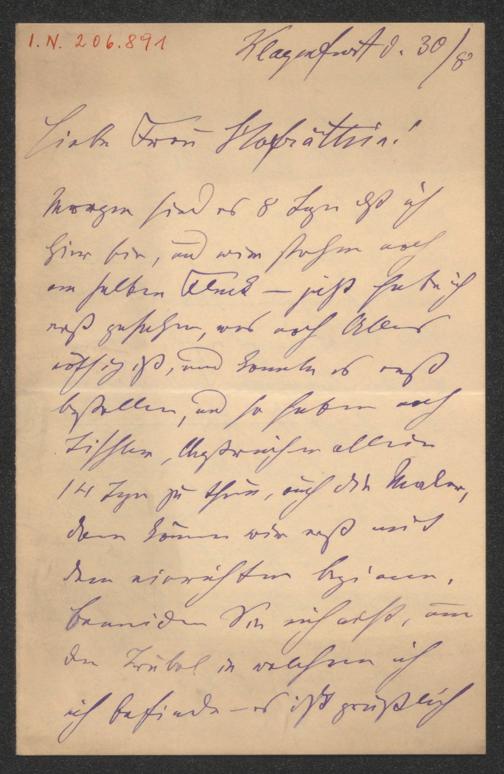 I.N. 206.891
Klagenfurt d. 30/8
Liebe Frau Hofräthin!
Morgen sind es 8 Tage daß ich
hier bin, und wir stehen noch
am selben Fleck – jetzt habe ich
erst gesehen, was noch Alles
nöthig ist, und konnte es erst
bestellen, und so haben noch
Tischler, Anstreicher allein
14 Tage zu thun, auch die Maler,
dann können wir erst mit
dem einrichten beginnen.
Beneiden Sie mich nicht, um
den Trubel in welchem ich
ich befinde – es ist gräßlich